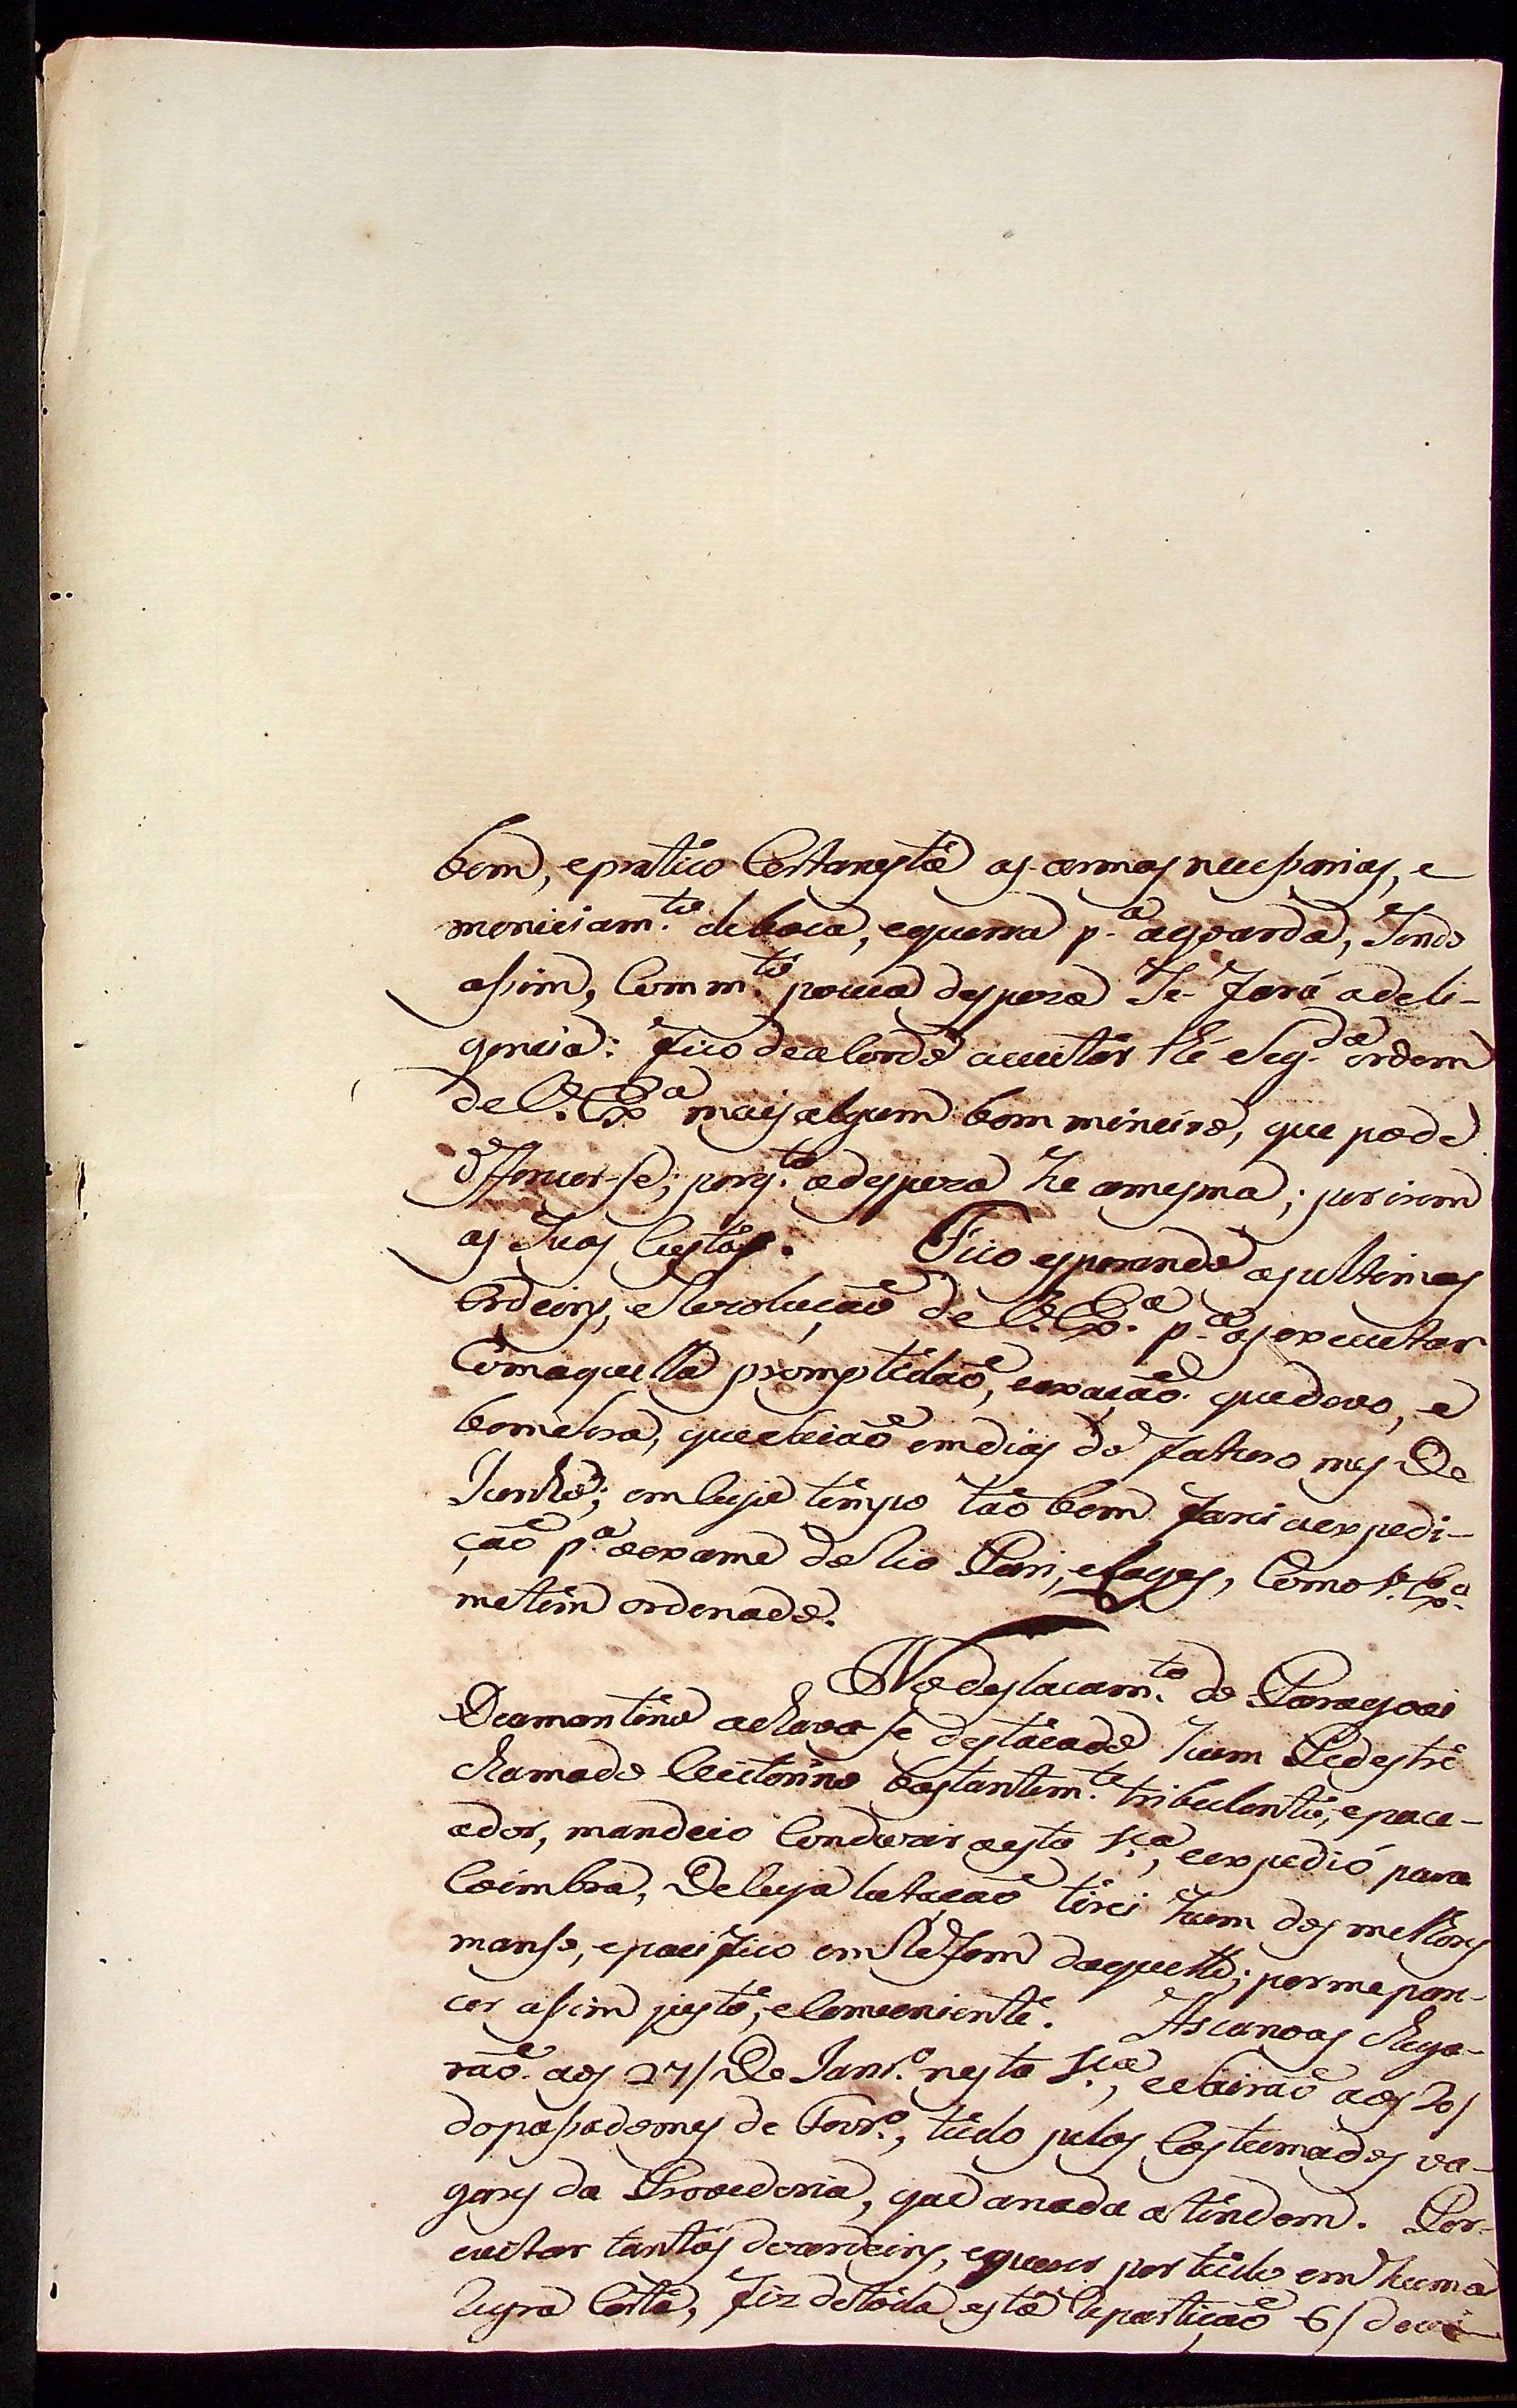 bem, epratico Certanista as armas necesarias, e
moniciam.to deboca, eguerra p.a aguarda, Sendo
asim, Com m.to pouca despeza Se Fará adeli-
gencia: Fico de acordo aceitar the Seg.da ordem
de V. Ex.a mais algum bom mineiro, que pode
oferecer-se; porq.to adespeza he amesma; por irem
as Suas Custas. Fico esperando as ultimas
Ordeins, eRezoluçaõ de V. Ex.a p.a as executar
Com aquella promptidaõ, eexaçaõ que devo, e
em dias do futuro mes De
Junho; em Cujo tempo taõ bem Farei aexpedi-
çaõ p.a oexame do Rio Pari, eLages, Como V. Ex.a
metem ordenado.
No destacam.to do Paragoai
Deamantino achava se destacado hum Pedestre
chamado Vuitorino bastantem.te tribulento, epace-
ador, mandeio Conduzir aesta V.a, eexpedió para
Coimbra, DeCuja Lotaçaõ tirei hum dos melhores
manso, epacifico em Refem daquelle; por me pare-
cer asim justo, eConveniente. As canoas chega-
raõ aos 27/ De Janr.o nesta V.a, eSairaõ aos 20/
do pasado mes de Fevr.o, tudo pelos Costumados va-
gares da Provedoria, que anada atendem. Por
evitar tantas dezordeins, equerer por tudo em huma
Regra Certa, fiz de toda esta Repartiçaõ 6/